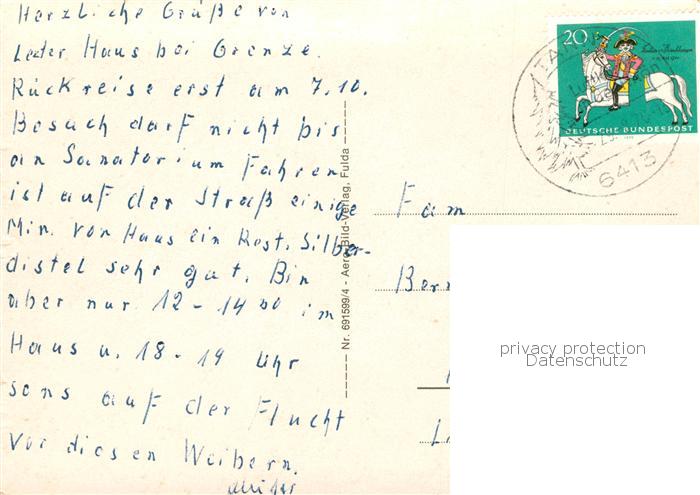 Herzliche Grüße von
Letzter Haus bei Grenze.
Rückreise erst am 7.10.
Besuch darf nicht bis
an Sanatorium fahren
ist auf der Straß einige
Min. vor Haus ein Rest. Silber-
distel sehr gut. Bin
aber nur 12 - 14 00 im
Haus u. 18 - 19 Uhr
sons auf der Flucht
vor diesen Weibern.
Nr. 691599/4 - Aero-Bild-Verlag, Fulda
20
DEUTSCHE BUNDESPOST
6413
Fam
Bern
privacy protection
Datenschutz